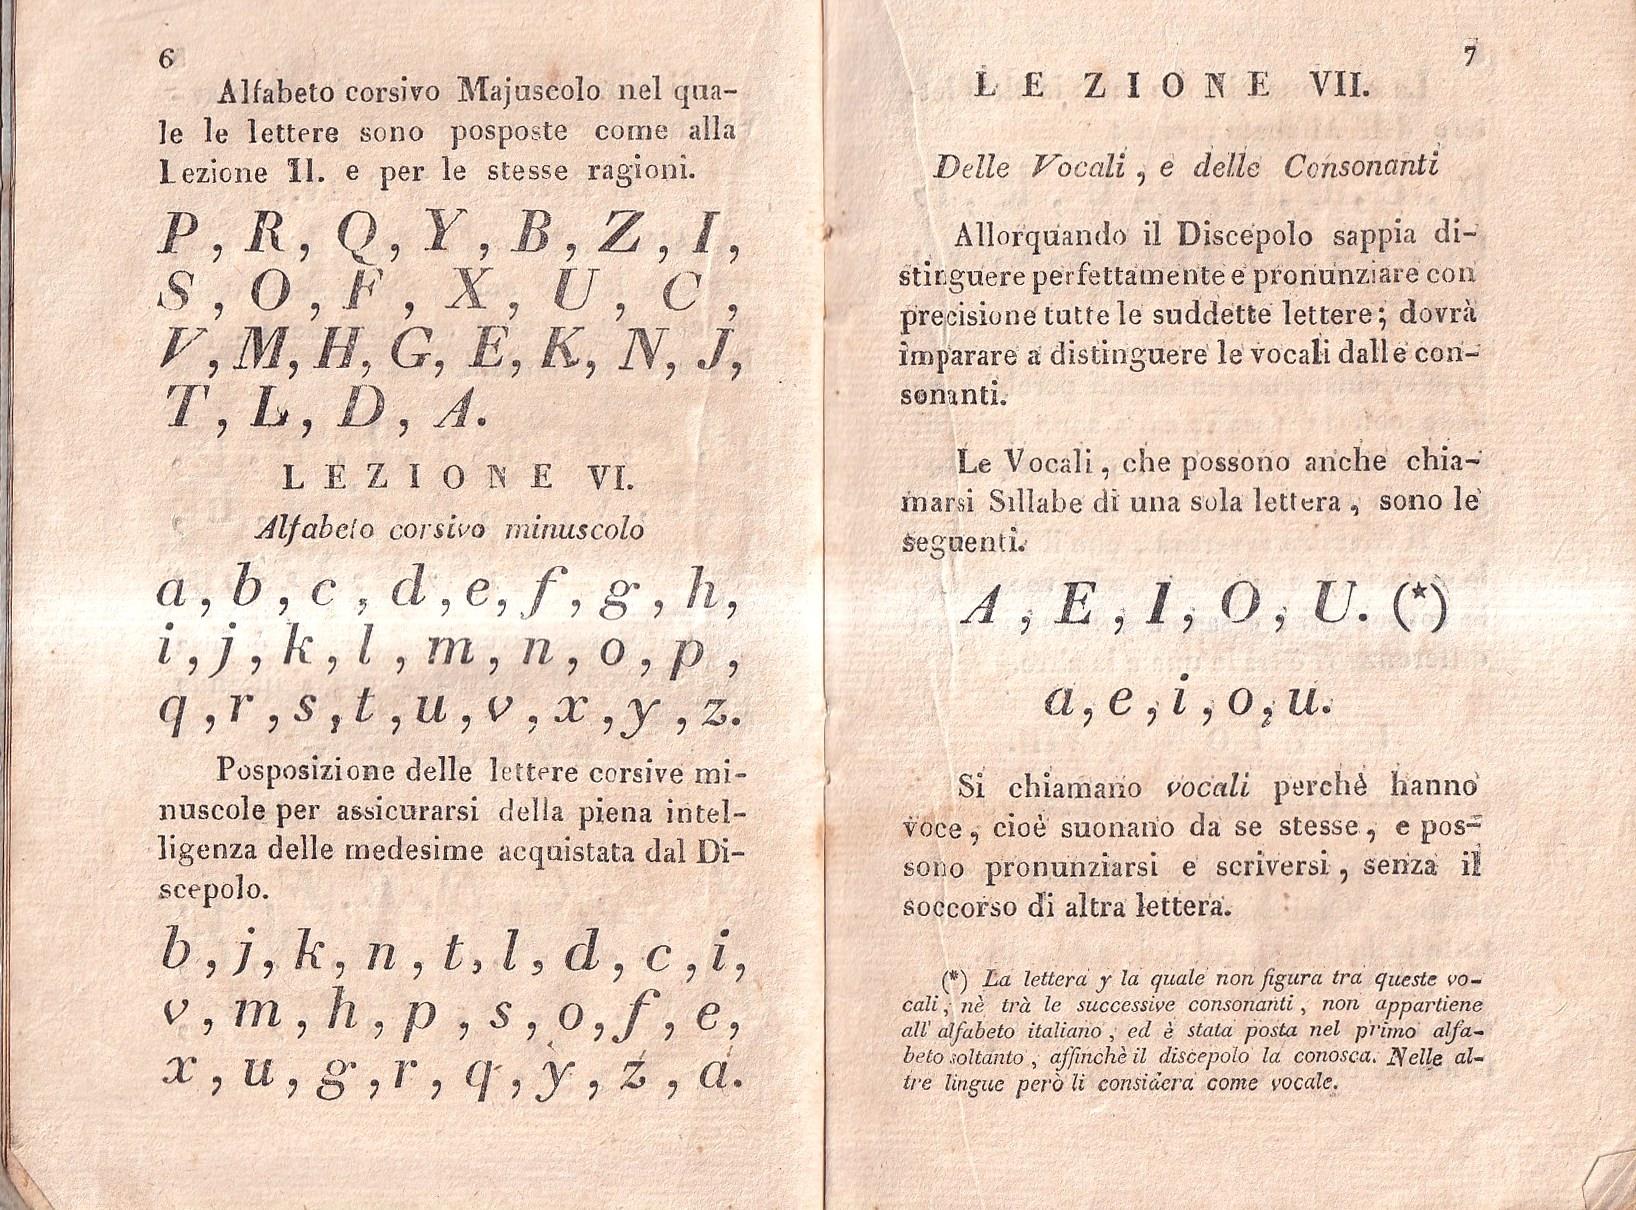 6
Alfabeto corsivo Majuscolo nel qua-
le le lettere sono posposte come alla
Lezione II. e per le stesse ragioni.
P, R, Q, Y, B, Z, I,
S, O, F, X, U, C,
V, M, H, G, E, K, N, J,
T, L, D, A.
LEZIONE VI.
Alfabeto corsivo minuscolo
a, b, c, d, e, f, g, h,
i, j, k, l, m, n, o, p,
q, r, s, t, u, v, x, y, z.
Posposizione delle lettere corsive mi-
nuscole per assicurarsi della piena intel-
ligenza delle medesime acquistata dal Di-
scepolo.
b, j, k, n, t, l, d, c, i,
v, m, h, p, s, o, f, e,
x, u, g, r, q, y, z, a.
7
LEZIONE VII.
Delle Vocali, e delle Consonanti
Allorquando il Discepolo sappia di-
stinguere perfettamente e pronunziare con
precisione tutte le suddette lettere; dovrà
imparare a distinguere le vocali dalle con-
sonanti.
Le Vocali, che possono anche chia-
marsi Sillabe di una sola lettera, sono le
seguenti.
A, E, I, O, U. (*)
a, e, i, o, u.
Si chiamano vocali perchè hanno
voce, cioè suonano da se stesse, e pos-
sono pronunziarsi e scriversi, senza il
soccorso di altra lettera.
(*) La lettera y la quale non figura tra queste vo-
cali, nè trà le successive consonanti, non appartiene
all' alfabeto italiano, ed è stata posta nel primo alfa-
beto soltanto, affinchè il discepolo la conosca. Nelle al-
tre lingue però li considera come vocale.